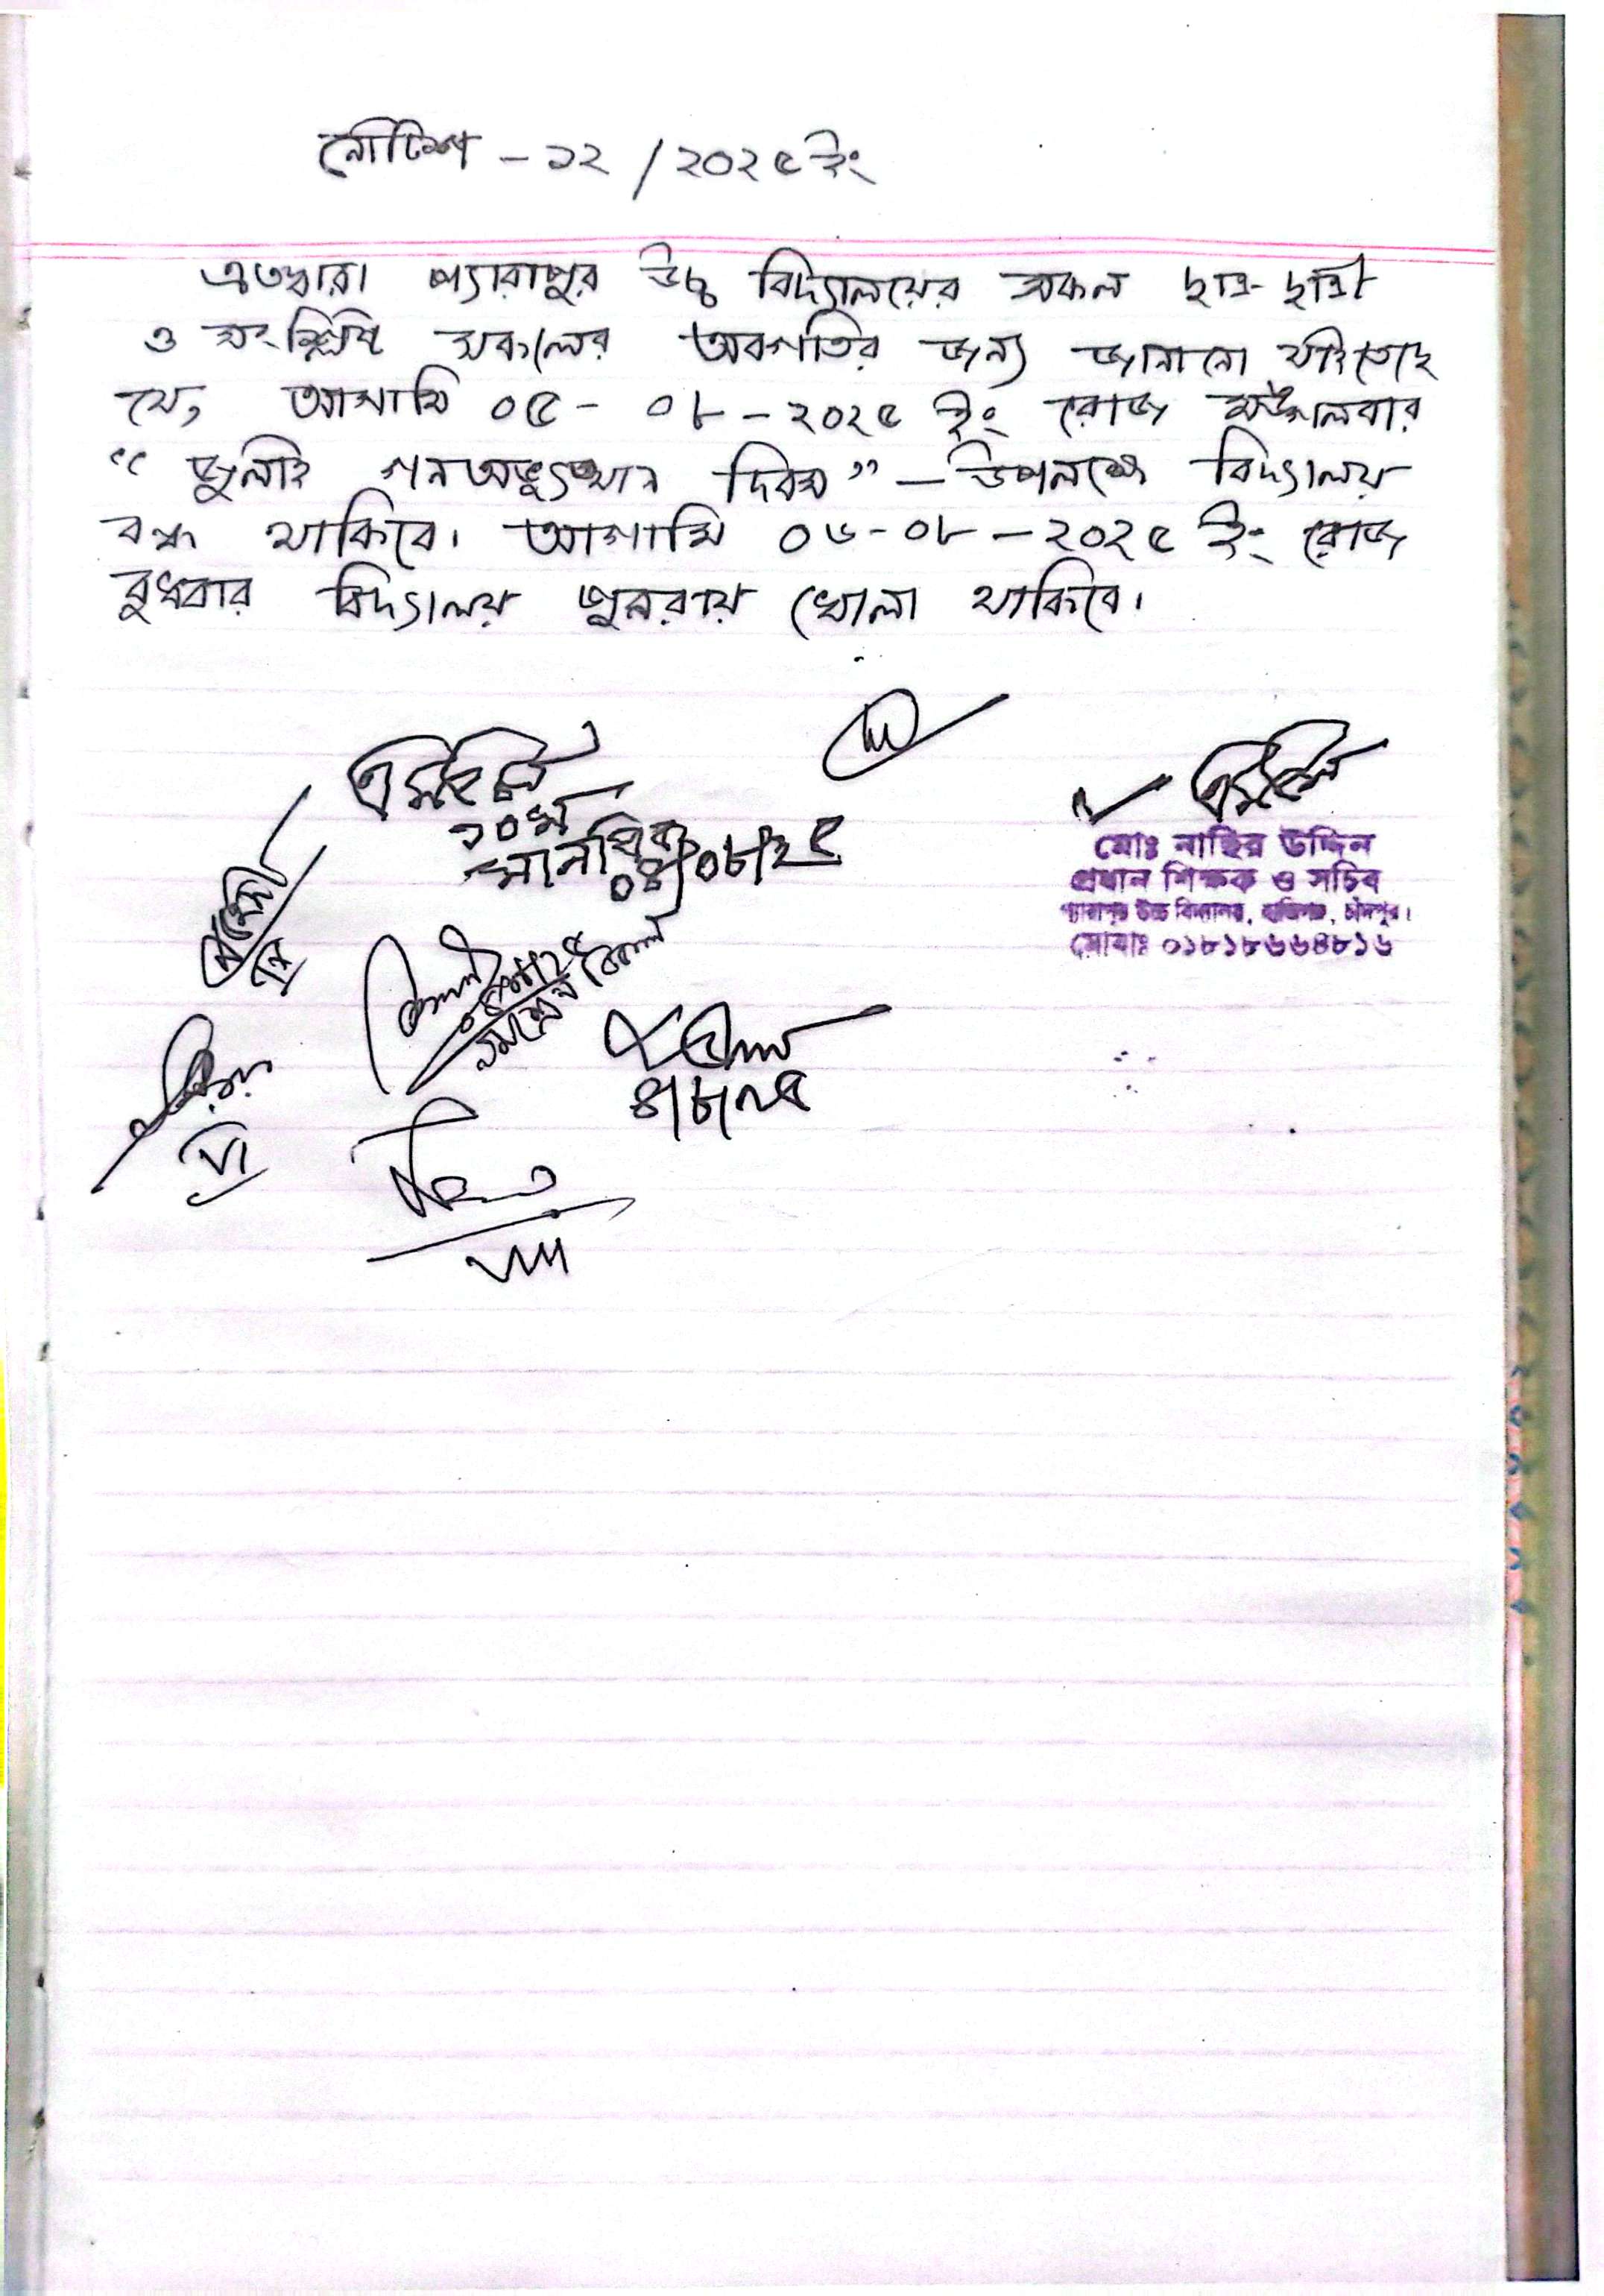 নোটিশ - ১২ / ২০২৫ ইং
এতদ্বারা প্যারাপুর উচ্চ বিদ্যালয়ের সকল ছাত্র-ছাত্রী
ও সংশ্লিষ্ট সকলের অবগতির জন্য জানানো যাইতেছে
যে, আগামি ০৫-০৮-২০২৫ ইং রোজ মঙ্গলবার
“জুলাই গনঅভ্যুত্থান দিবস” - উপলক্ষে বিদ্যালয়
বন্ধ থাকিবে। আগামি ০৬-০৮-২০২৫ ইং রোজ
বুধবার বিদ্যালয় পুনরায় খোলা থাকিবে।
১০ম
মানবিক
০৪/০৮/২৫
মোঃ নাছির উদ্দিন
প্রধান শিক্ষক ও সচিব
প্যারাপুর উচ্চ বিদ্যালয়, হাজিগঞ্জ, চাঁদপুর।
মোবাঃ ০১৮১৮৬৬৪৮১৬
৪/৮/২৫
VIII